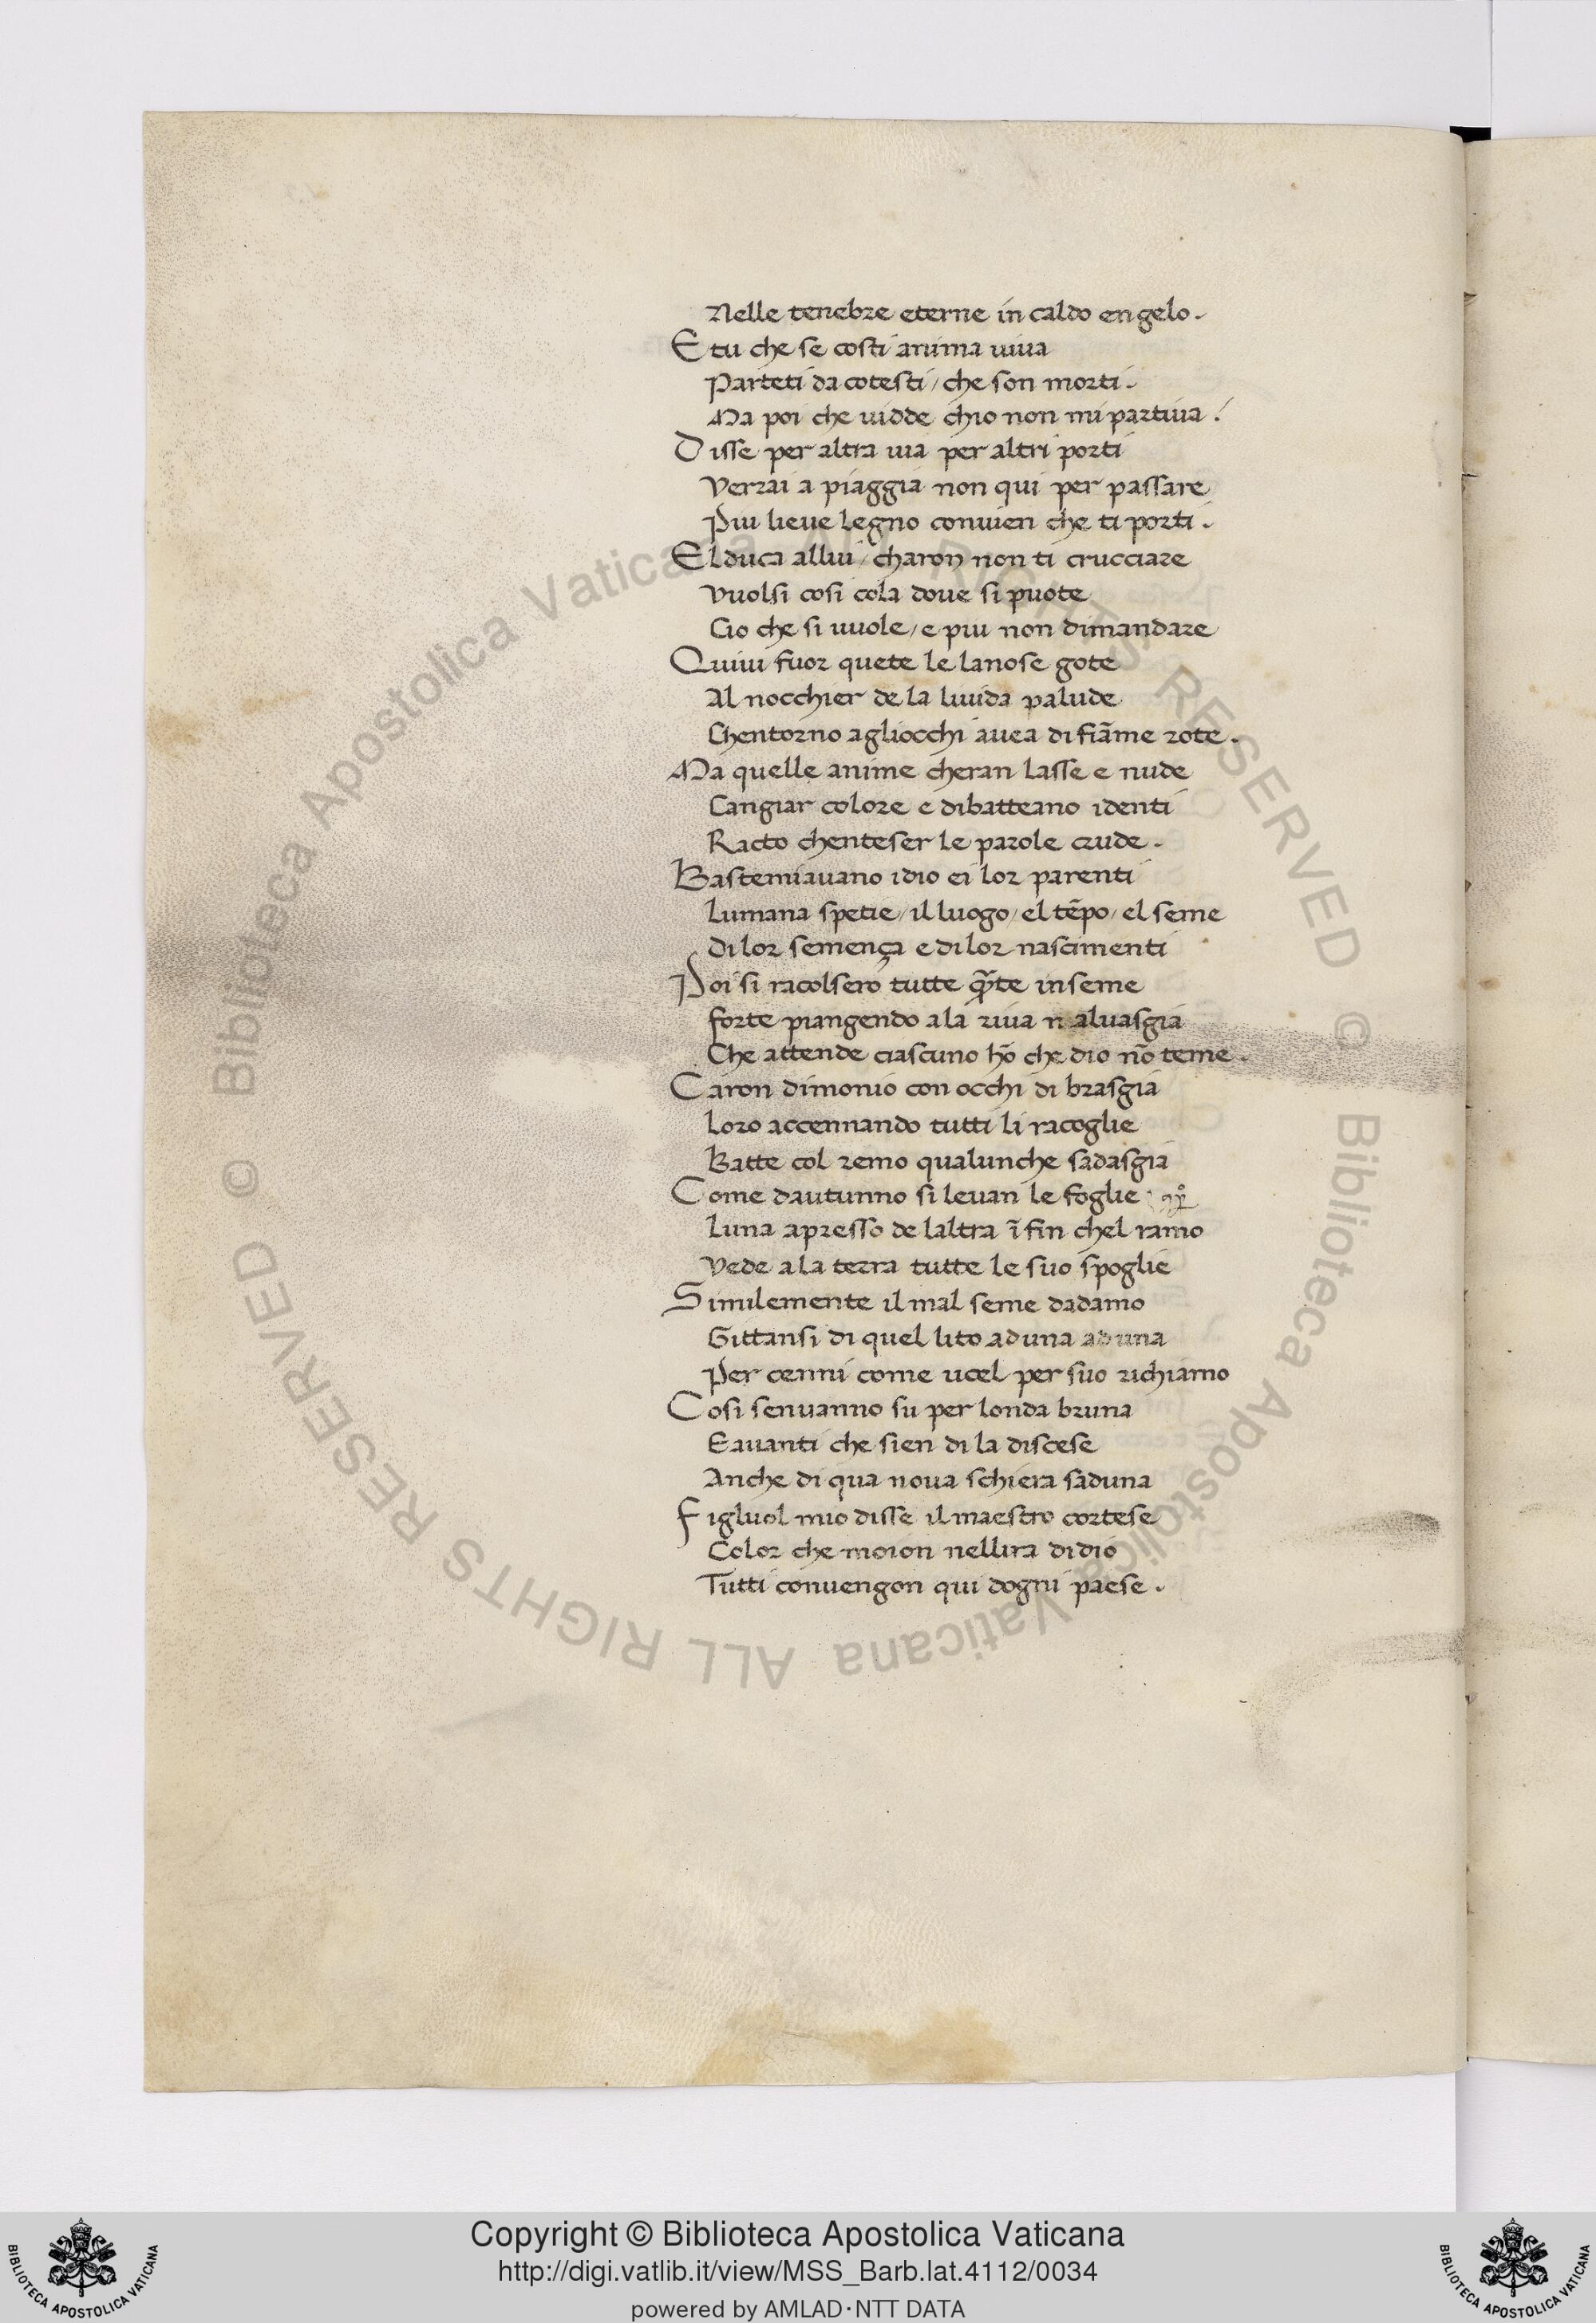 Nelle tenebre eterne in caldo en gelo.
E tu che se costi anima viva
Parteti da cotesti / che son morti.
Ma poi che vidde chio non mi partiva.
Disse per altra via per altri porti
Verrai a piaggia non qui per passare
Piu lieve legno convien che ti porti.
El duca allui / charon non ti crucciare
Vuolsi cosi cola dove si puote
Cio che si vuole / e piu non dimandare
Quivi fuor quete le lanose gote
Al nocchier de la livida palude
Chentorno agliocchi avea di fiãme rote.
Ma quelle anime cheran lasse e nude
Cangiar colore e dibatteano identi
Racto chenteser le parole crude.
Bastemiavano idio ei lor parenti
Lumana spetie / il luogo / el tẽpo / el seme
Di lor semença e di lor nascimenti
Poi si racolsero tutte q̃te inseme
forte piangendo a la riva alvasgia
Che attende ciascuno hõ che dio nõ teme.
Caron dimonio con occhi di brasgia
Loro accennando tutti li racoglie
Batte col remo qualunche sadasgia
Come dautunno si levan le foglie
Luna apresso de laltra ĩ fin chel ramo
Vede a la terra tutte le suo spoglie
Similemente il mal seme dadamo
Gittansi di quel lito ad una ad una
Per cenni come ucel per suo richiamo
Cosi senvanno su per londa bruna
E avanti che sien di la discese
Anche di qua nova schiera saduna
Figluol mio disse il maestro cortese
Color che moion nellira didio
Tutti convengon qui dogni paese.
© Biblioteca Apostolica Vaticana ALL RIGHTS RESERVED © Biblioteca Apostolica Vaticana ALL RIGHTS RESERVED
Copyright © Biblioteca Apostolica Vaticana
http://digi.vatlib.it/view/MSS_Barb.lat.4112/0034
powered by AMLAD·NTT DATA
BIBLIOTECA APOSTOLICA VATICANA
BIBLIOTECA APOSTOLICA VATICANA